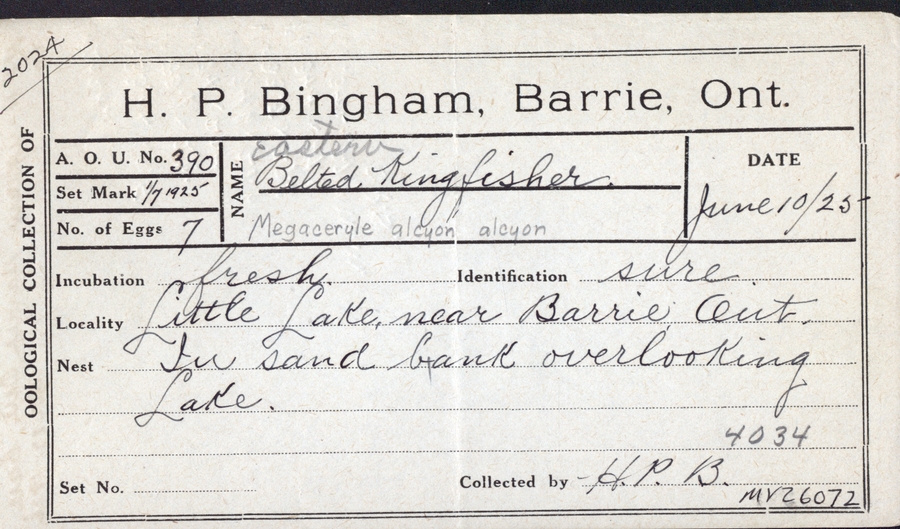 2024
OOLOGICAL COLLECTION OF
H. P. Bingham, Barrie, Ont.
A. O. U. No. 390
Set Mark 1/7 1925
No. of Eggs 7
NAME
Eastern
Belted Kingfisher.
Megaceryle alcyon alcyon
DATE
June 10/25
Incubation fresh. Identification sure
Locality Little Lake, near Barrie, Ont.
Nest In sand bank overlooking
Lake.
4034
Set No.
Collected by H. P. B.
MVZ6072